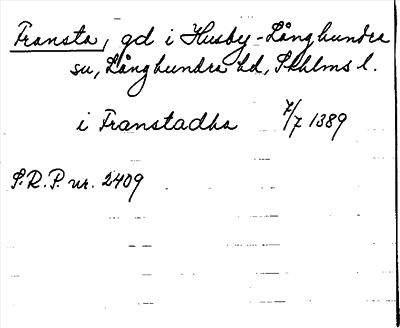 Fransta, gd i Husby-Långhundra
su, Långhundra hd, Sthlms l.
i Franstadha 7/7 1389
S.R.P. nr. 2409